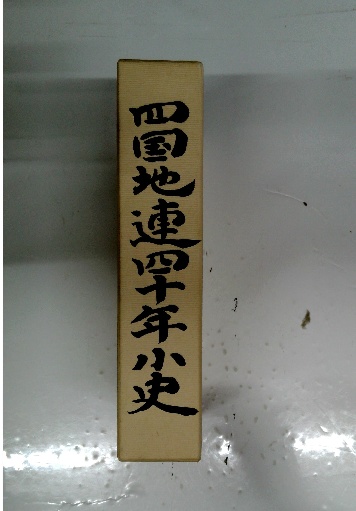 四国地連四十年小史